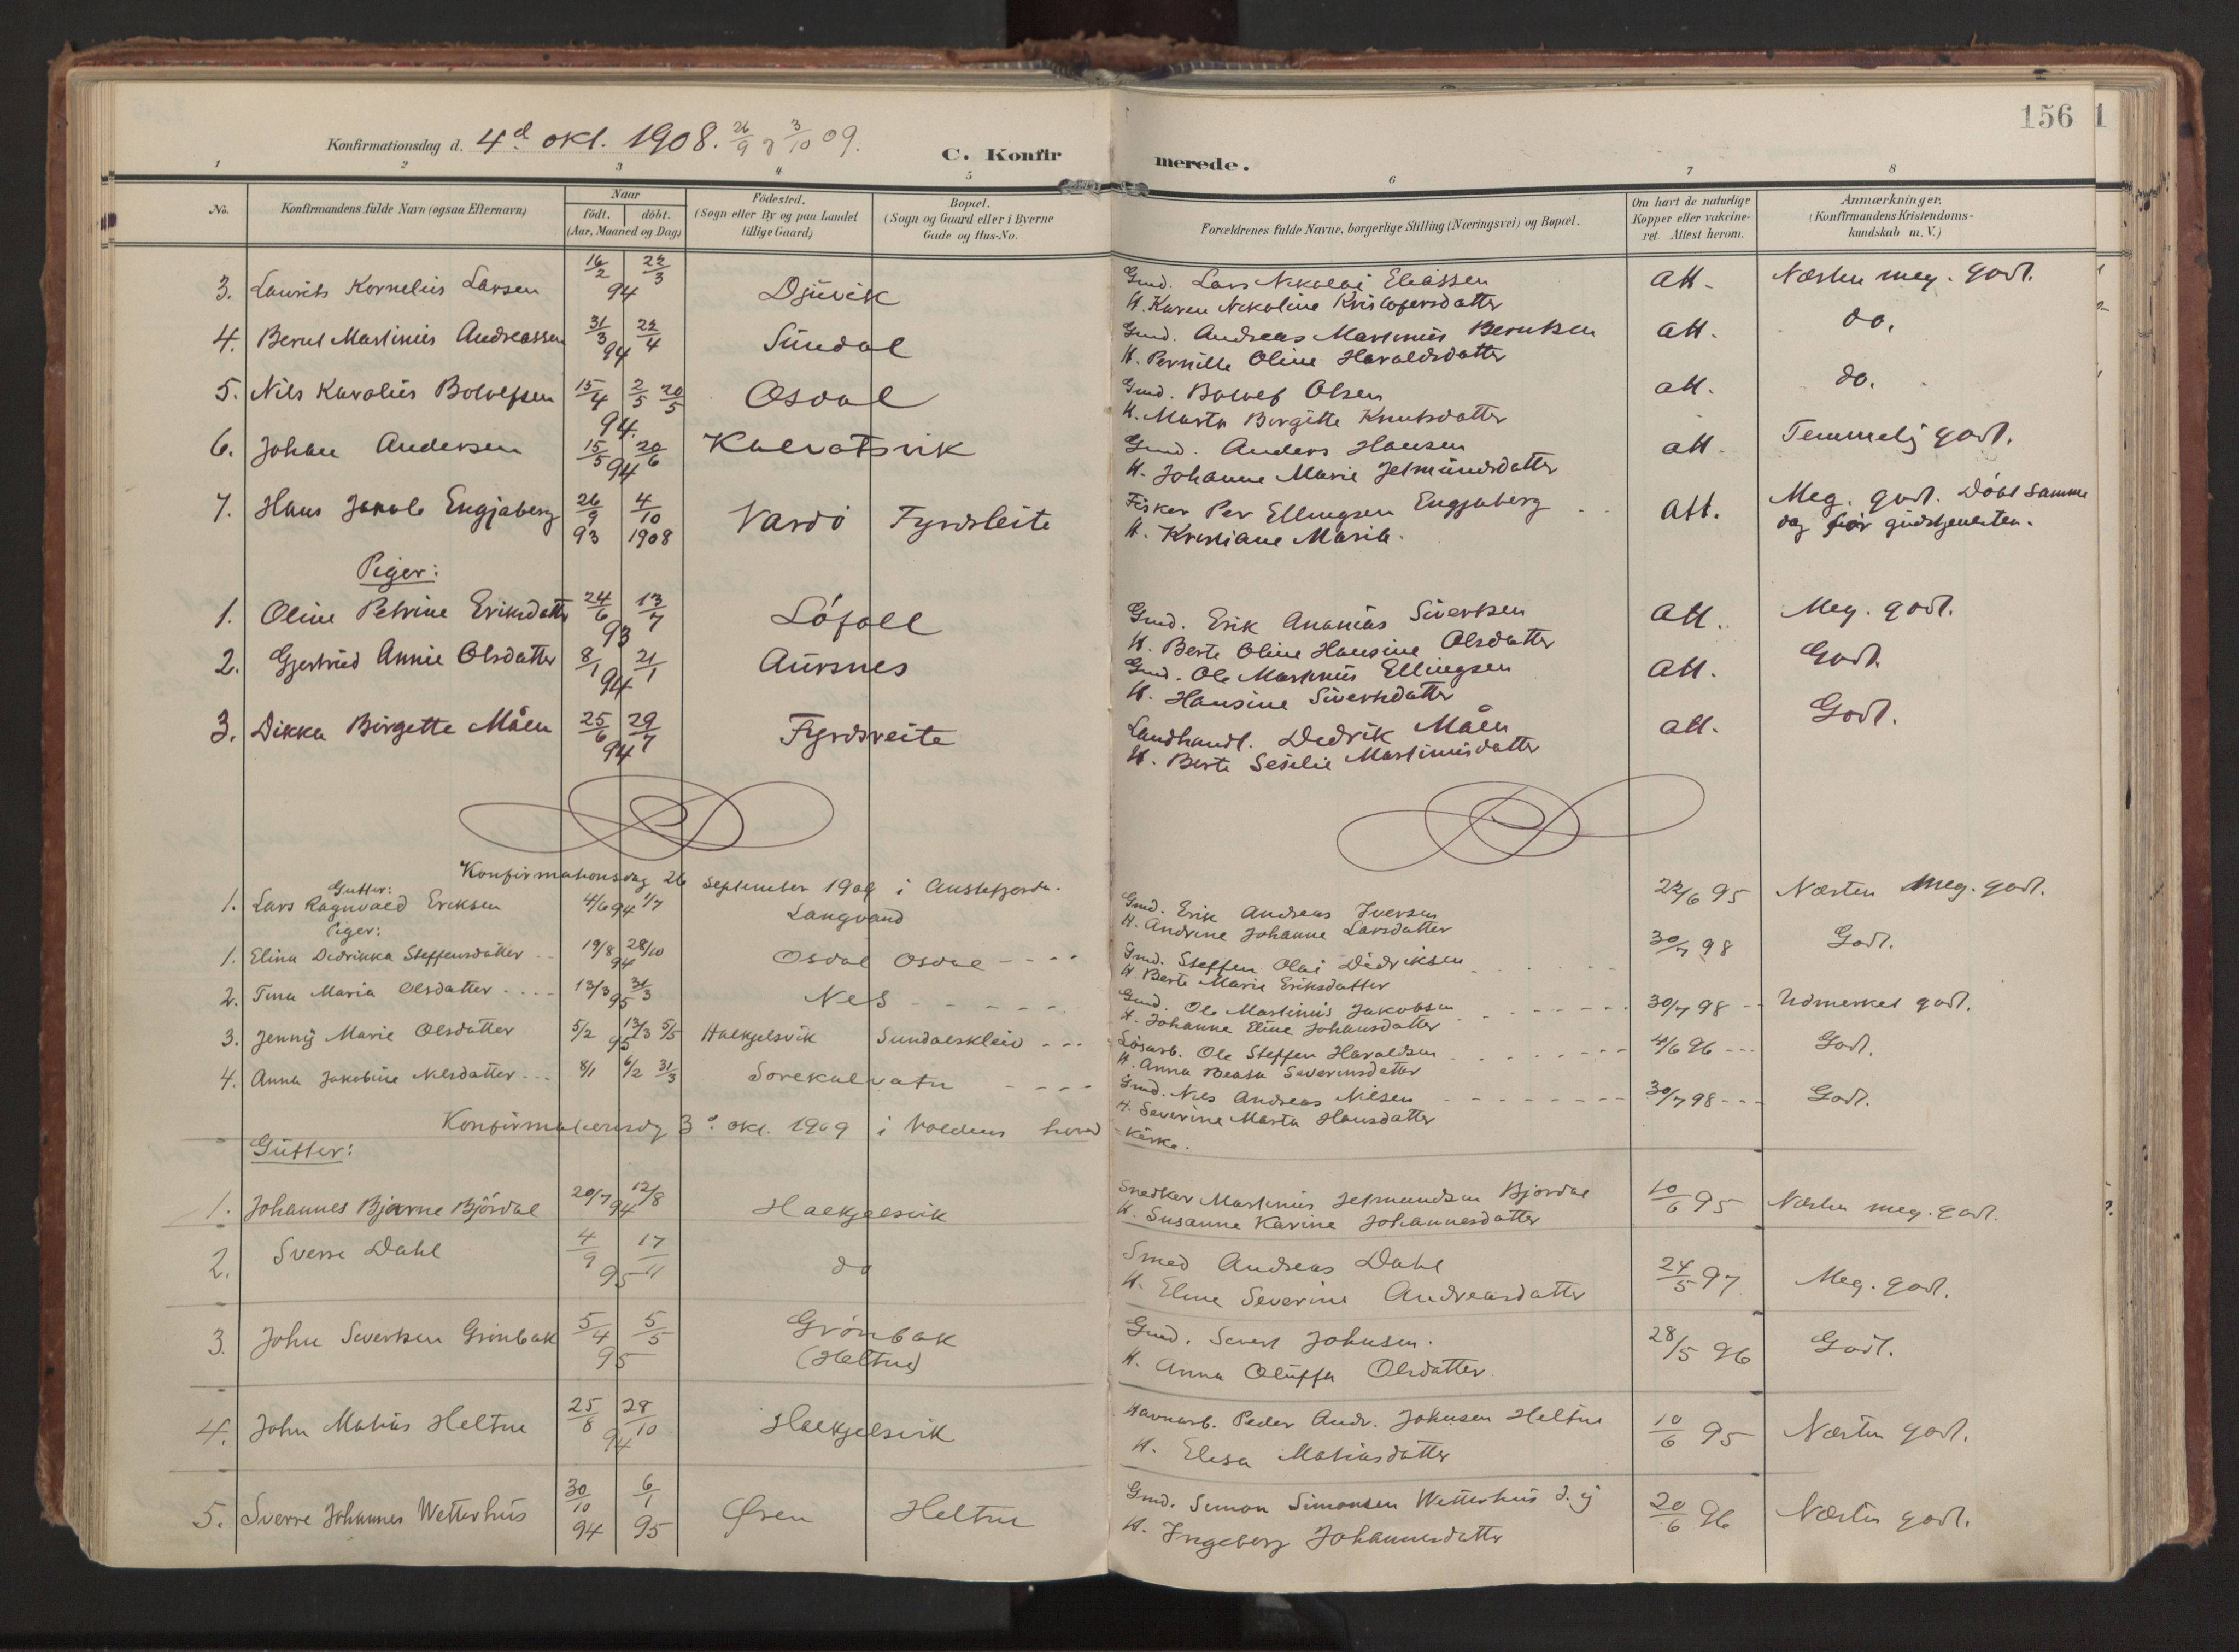 156 1
Konfirmationsdag d. 4de okt. 1908. 26/9 og 3/10 09.
C. Konfirmerede.
1 2 3 4 5 6 7 8
No. Konfirmandens fulde Navn (ogsaa Efternavn) Naar født. døbt. (Aar, Maaned og Dag) Fødested. (Sogn eller By og paa Landet tillige Gaard) Bopæl. (Sogn og Gaard eller i Byerne Gade og Hus-No. Forældrenes fulde Navne, borgerlige Stilling (Næringsvei) og Bopæl. Om havt de naturlige Kopper eller vakcineret. Attest herom. Anmærkninger. (Konfirmandens Kristendomskundskab m. V.)
3. Laurits Kornelius Larsen 16/2 22/3 94 Djuvik Gmd. Lars Nikolai Eliassen att. Næsten meg. godt.
H. Karen Nikoline Kristofersdatter
4. Bernt Martinius Andreassen 31/3 22/4 94 Sundal Gmd. Andreas Martinius Berntsen att. do.
H. Pernille Oline Haraldsdatter
5. Nils Karolius Bolvefsen 15/4 2/5 20/5 94. Osdal Gmd. Bolvef Olsen att. do.
H. Marta Birgitte Knutsdatter
6. Johan Andersen 15/5 20/6 94 Kalvatsvik Gmd. Anders Hansen att. Temmelig godt.
H. Johanne Marie Jetmundsdatter
7. Hans Jakob Engjaberg 26/9 93 4/10 1908 Vardø Fyrdsleite Fisker Per Ellingsen Engjaberg att. Meg. godt. Døbt samme
H. Kristiane Maria. dag før gudstjenesten.
Piger:
1. Oline Petrine Eriksdatter 24/6 13/7 93 Løfoll Gmd. Erik Ananias Sivertsen att. Meg. godt.
H. Berte Oline Hansine Olsdatter
2. Gjertrud Annie Olsdatter 8/1 21/1 94 Aursnes Gmd. Ole Martinius Ellingsen att. Godt.
H. Hansine Sivertsdatter
3. Dikka Birgette Måen 25/6 29/7 94 Fyrdsreite Landhandl. Dedrik Måen att. Godt.
H. Berte Sesilie Martinusdatter
Konfirmationsdag 26 September 1909 i Austefjorden.
Gutter:
1. Lars Ragnvald Eriksen 4/6 94 1/7 Langvand Gmd. Erik Andreas Iversen 22/6 95 Næsten meg. godt.
H. Andrine Johanne Larsdatter
Piger:
1. Elina Dedrikka Steffensdatter 19/8 28/10 94 Osdal Osdal Gmd. Steffen Olai Didriksen 30/7 98 Godt.
H. Berte Marie Eriksdatter
2. Tina Maria Olsdatter 13/3 31/3 95 Nes Gmd. Ole Martinius Jakobsen 30/7 98 Udmerket godt.
H. Johanne Eline Johansdatter
3. Jenny Marie Olsdatter 5/2 13/3 5/5 95 Halkjelsvik Sundalskleiv Løsarb. Ole Steffen Haraldsen 4/6 96 Godt.
H. Anna Beata Severinsdatter
4. Anna Jakobine Nilsdatter 8/1 6/2 31/3 Sørekalvatn Gmd. Nils Andreas Nilsen 30/7 98 Godt.
H. Severine Marta Hansdatter
Konfirmationsdag 3. okt. 1909 i Voldens hovedkirke.
Gutter:
1. Johannes Bjarne Bjørdal 20/7 12/8 94 Halkjelsvik Snedker Martinius Jetmundsen Bjørdal 10/6 95 Næsten meg. godt.
H. Susanne Karine Johannesdatter
2. Sverre Dahl 4/9 17/11 95 do Smed Andreas Dahl 24/5 97 Meg. godt.
H. Eline Severine Andreasdatter
3. John Severtsen Grønbak 5/4 5/5 95 Grønbak (Heltne) Gmd. Severt Johnsen. 28/5 96 Godt.
H. Anna Oluffa Olsdatter
4. John Matias Heltne 25/8 28/10 94 Halkjelsvik Havnarb. Peder Andr. Johnsen Heltne 10/6 95 Næsten godt.
H. Elisa Matiasdatter
5. Sverre Johannes Wetterhus 30/10 94 6/1 95 Øren Heltne Gmd. Simon Simonsen Wetterhus 20/6 96 Næsten godt.
H. Ingeborg Johannesdatter